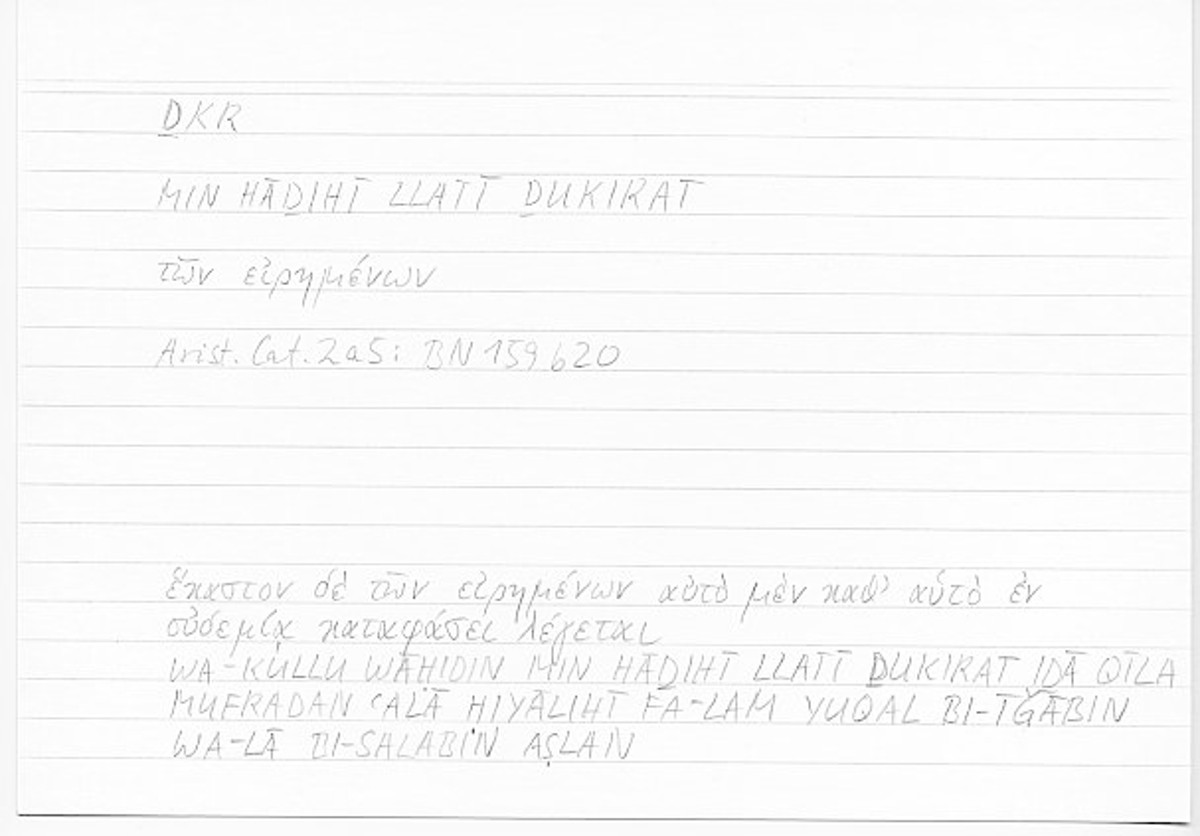 ḎKR
MIN HĀḎIHĪ LLATĪ ḎUKIRAT
τῶν εἰρημένων
Arist. Cat. 2a5: BN 159b20
ἕκαστον δὲ τῶν εἰρημένων αὐτὸ μὲν καθ' αὑτὸ ἐν
οὐδεμίᾳ καταφάσει λέγεται
WA-KULLU WĀḤIDIN MIN HĀḎIHĪ LLATĪ ḎUKIRAT IḎĀ QĪLA
MUFRADAN ʿALĀ ḤIYĀLIHĪ FA-LAM YUQAL BI-ĪǦĀBIN
WA-LĀ BI-SALABIN AṢLAN